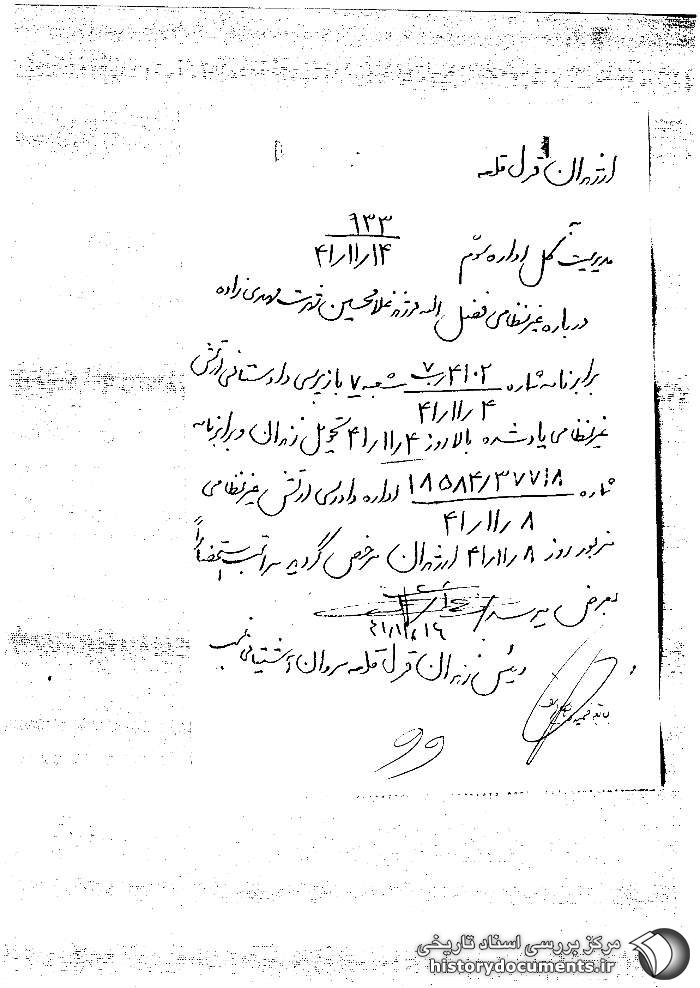 از زندان قزل قلعه
۹۳۳
۴۱/۱۱/۱۴
مدیریت کل اداره سوم
درباره غیرنظامی فضل اله فرزند غلامحسین شهرت مهدی زاده
برابر نامه شماره ۴۱۰۲/ب/۷ شعبه ۷ بازپرسی دادستانی ارتش
۴۱/۱۱/۴
غیرنظامی یاد شده بالا روز ۴۱/۱۱/۴ تحویل زندان و برابر نامه
شماره ۱۸۵۸۴/۳۷۷۱۸ اداره دادرسی ارتش غیرنظامی
۴۱/۱۱/۸
مزبور روز ۴۱/۱۱/۸ از زندان مرخص گردید مراتب استحضاراً
بعرض میرسد
۴۱/۱۱/۱۶
رئیس زندان قزل قلعه سروان آشتیانی
بایگانی
مرکز بررسی اسناد تاریخی
historydocuments.ir